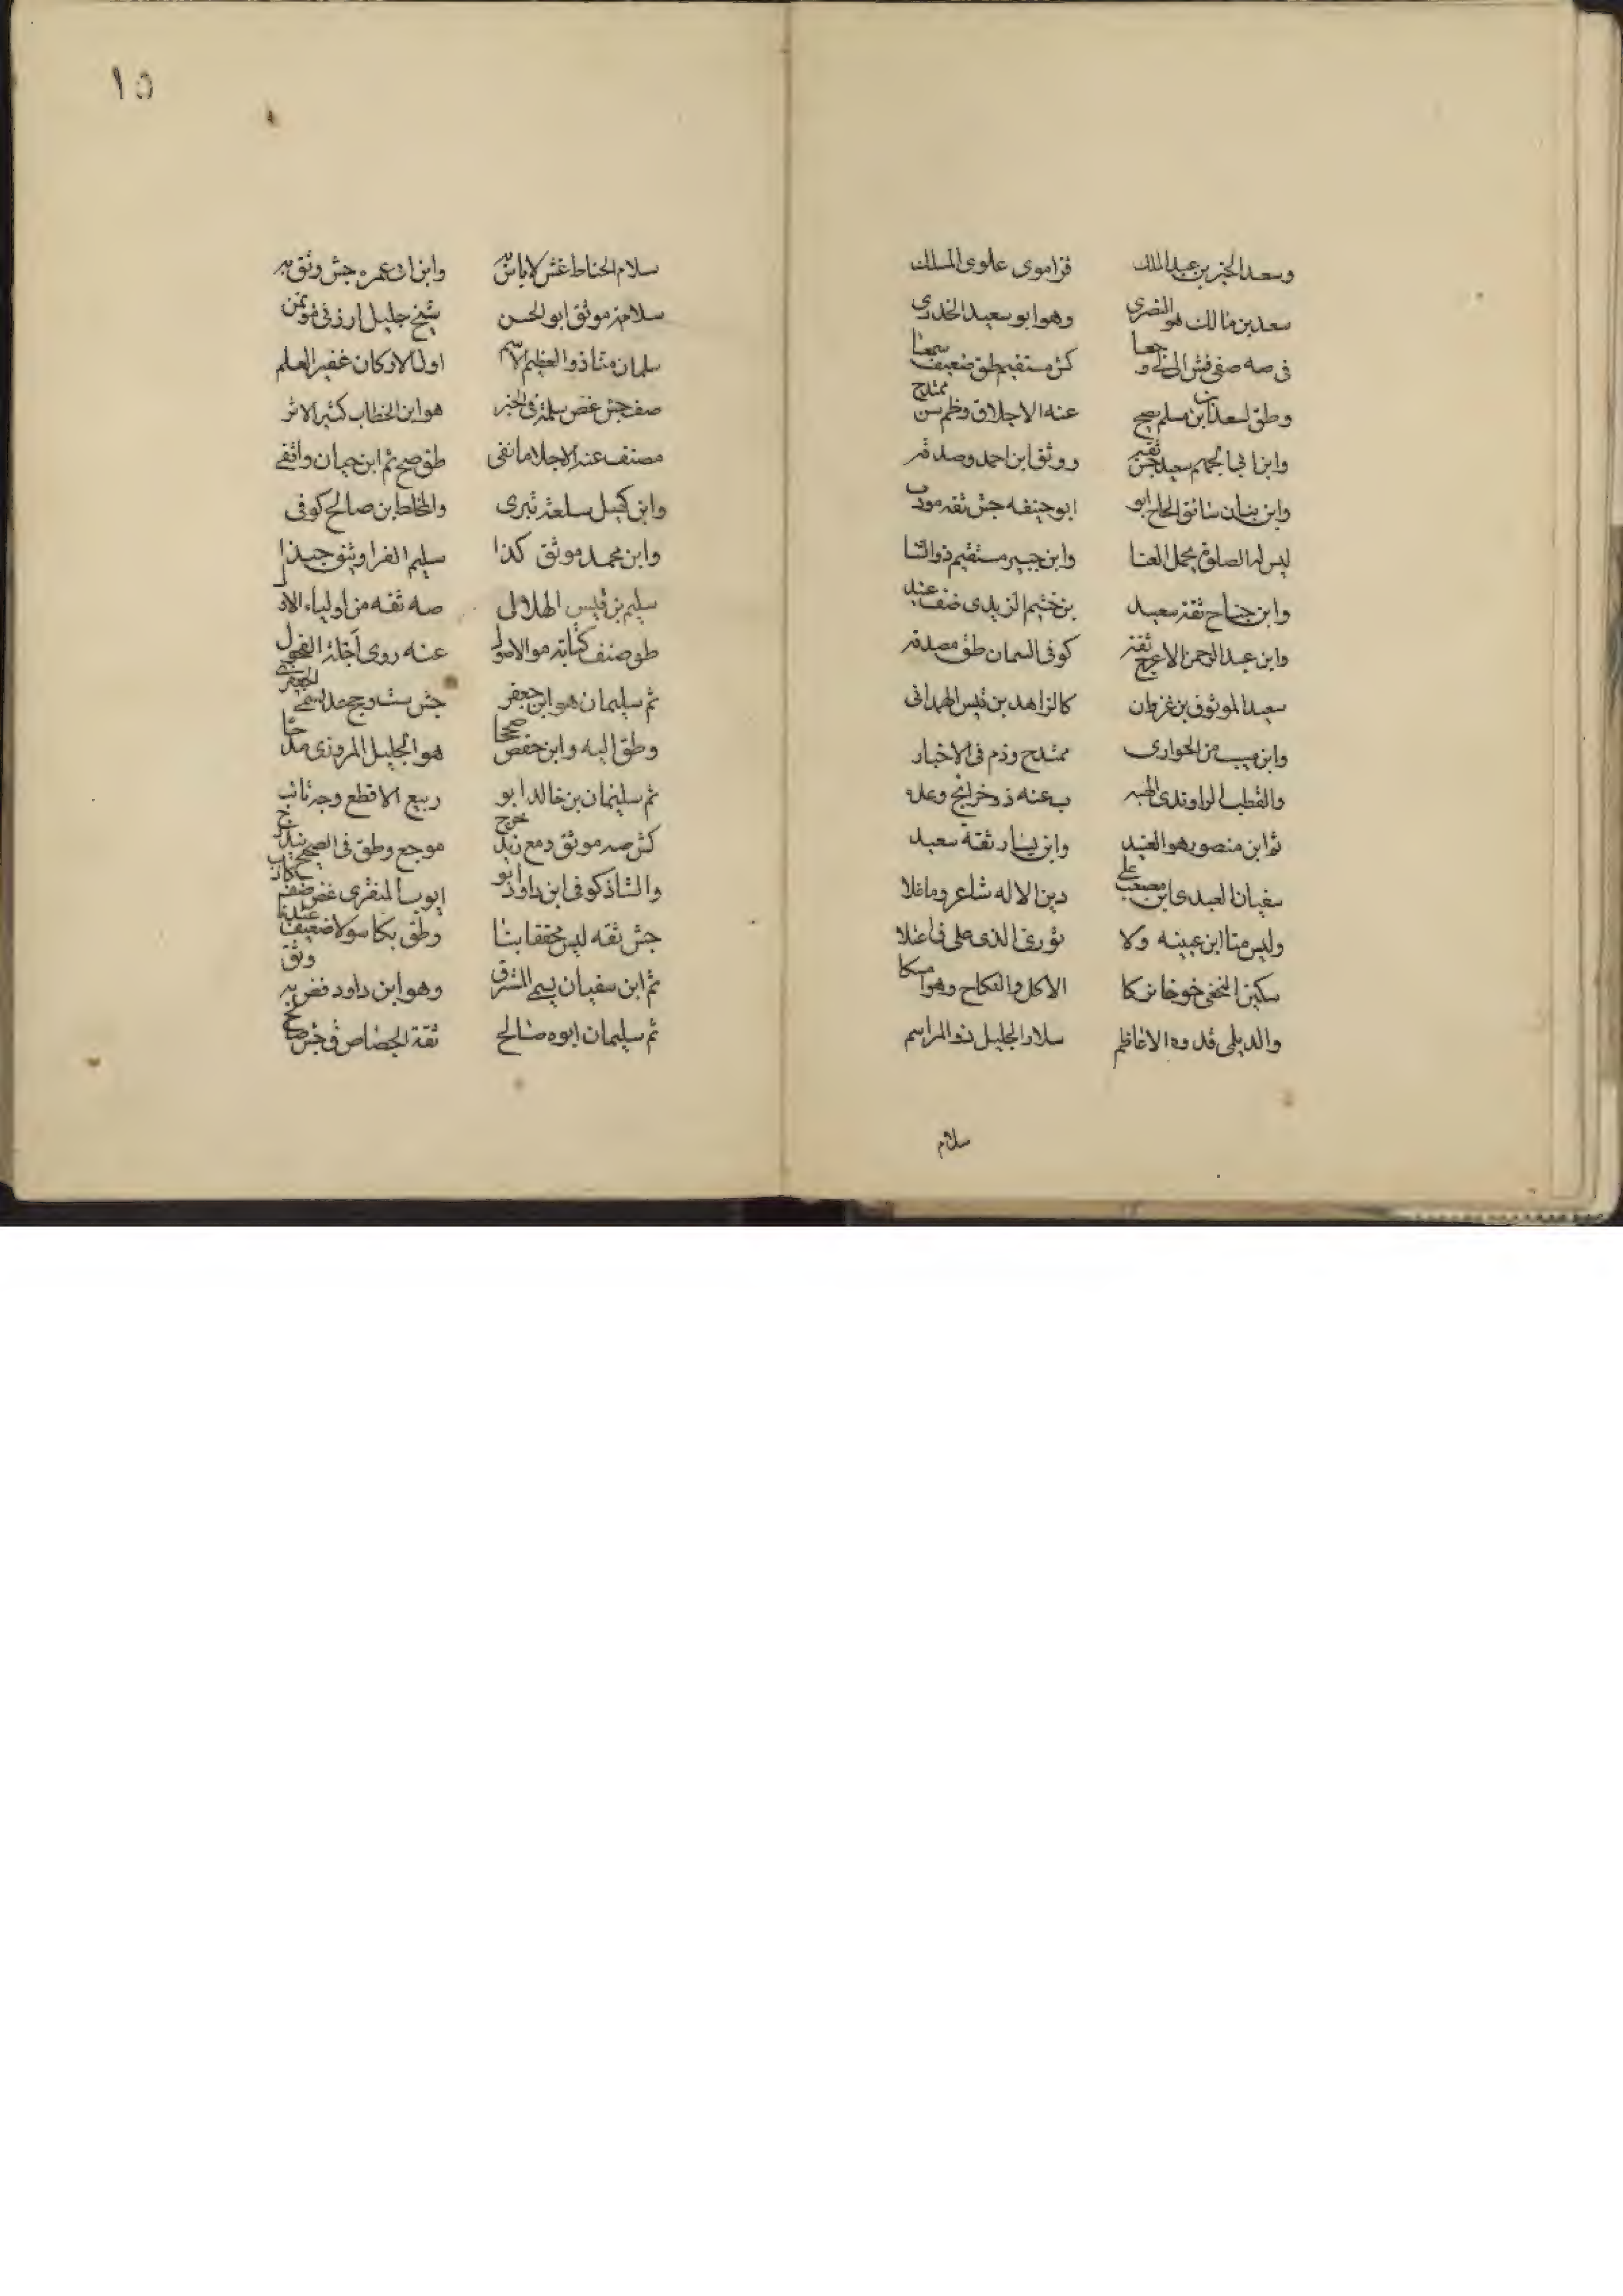 وسعد الخير بن عبد الملك قر اموى علوى المسلك
سعد بن مالك هو النضرى وهو ابو سعيد الخدرى
فى صه صفى كش مستقيم طق ضعيف سمعا
وطق لسعد ابن مسلم صح عنه الاجلا ق وظم سن ممتدح
وابن ابى الجهم سعيد جش ثقه ووثق ابن احمد وصدقه
وابن بنان سائق الحاج ابو ابو حنيفه جش ثقه
ليس له الصلوة مجمل العنا وابن جبير مستقيم ذو الثنا
وابن جناح ثقة سعيد بن خثيم الزيدى ضف عنيد
وابن عبد الرحمن الاعرج ثقة كوفى السمان طق مصدقه
سعيد الموثوق بن غزوان كالزاهد بن قيس الهمدانى
وابن مسيب من الحوارى ممتدح وذم فى الاخبار
والقطب الراوندى الهبه ب عنه ذو خرائج وعده
ثم ابن منصور هو العنيد وابن يسار ثقة سعيد
سفيان العبدى ابن مصعب على دين الاله شاعر وما غلا
وليس منا ابن عيينه ولا ثورى الذى على فاعتلا
سكين النخعى خوفا تركا الاكل والنكاح وهو امسكا
والديلمى قدوه الاعاظم سلار الجليل ذو المراسم
سلام
١٥
سلام الحناط غش لا باس به وابن ابى عمره جش وثق به
سلامة موثق ابو الحسن شيخ جليل ارزنى مؤتمن
سلمان منا ذو العظيم الاسم اول الاركان غفير العلم
صف جش غض سلمة فى الخبر هو ابن الخطاب كثير الاثر
مصنف عنه الاجلا ما نفى طق صح ثم ابن حيان واقفى
وابن كهيل سلمة تبرى والمخلط بن صالح كوفى
وابن محمد موثق كذا سليم الفرا وثق حبذا
سليم بن قيس الهلالى صه ثقه من اولياء الال
طو صنف كتابه هو الاصول عنه روى اجلة الفحول
ثم سليمان هو ابن جعفر جش ست وجع مد يسمى الجعفرى
وطق اليه وابن حفص صححا هو الجليل المروزى مدحا
ثم سليمان بن خالد ابو ربيع الاقطع وجه تائب
كش صه موثق ومع زيد خرج موجع وطق فى الصحيح
والشاذكوفى ابن داود ابو ايوب المنقرى غض ضعف
جش ثقه ليس محققا بنا وطق بكاسولا ضعيف عندنا
ثم ابن سفيان يسمى المسترق وهو ابن داود فض به وثق
ثم سليمان ابوه صالح ثقة الجصاص فى جش صالح